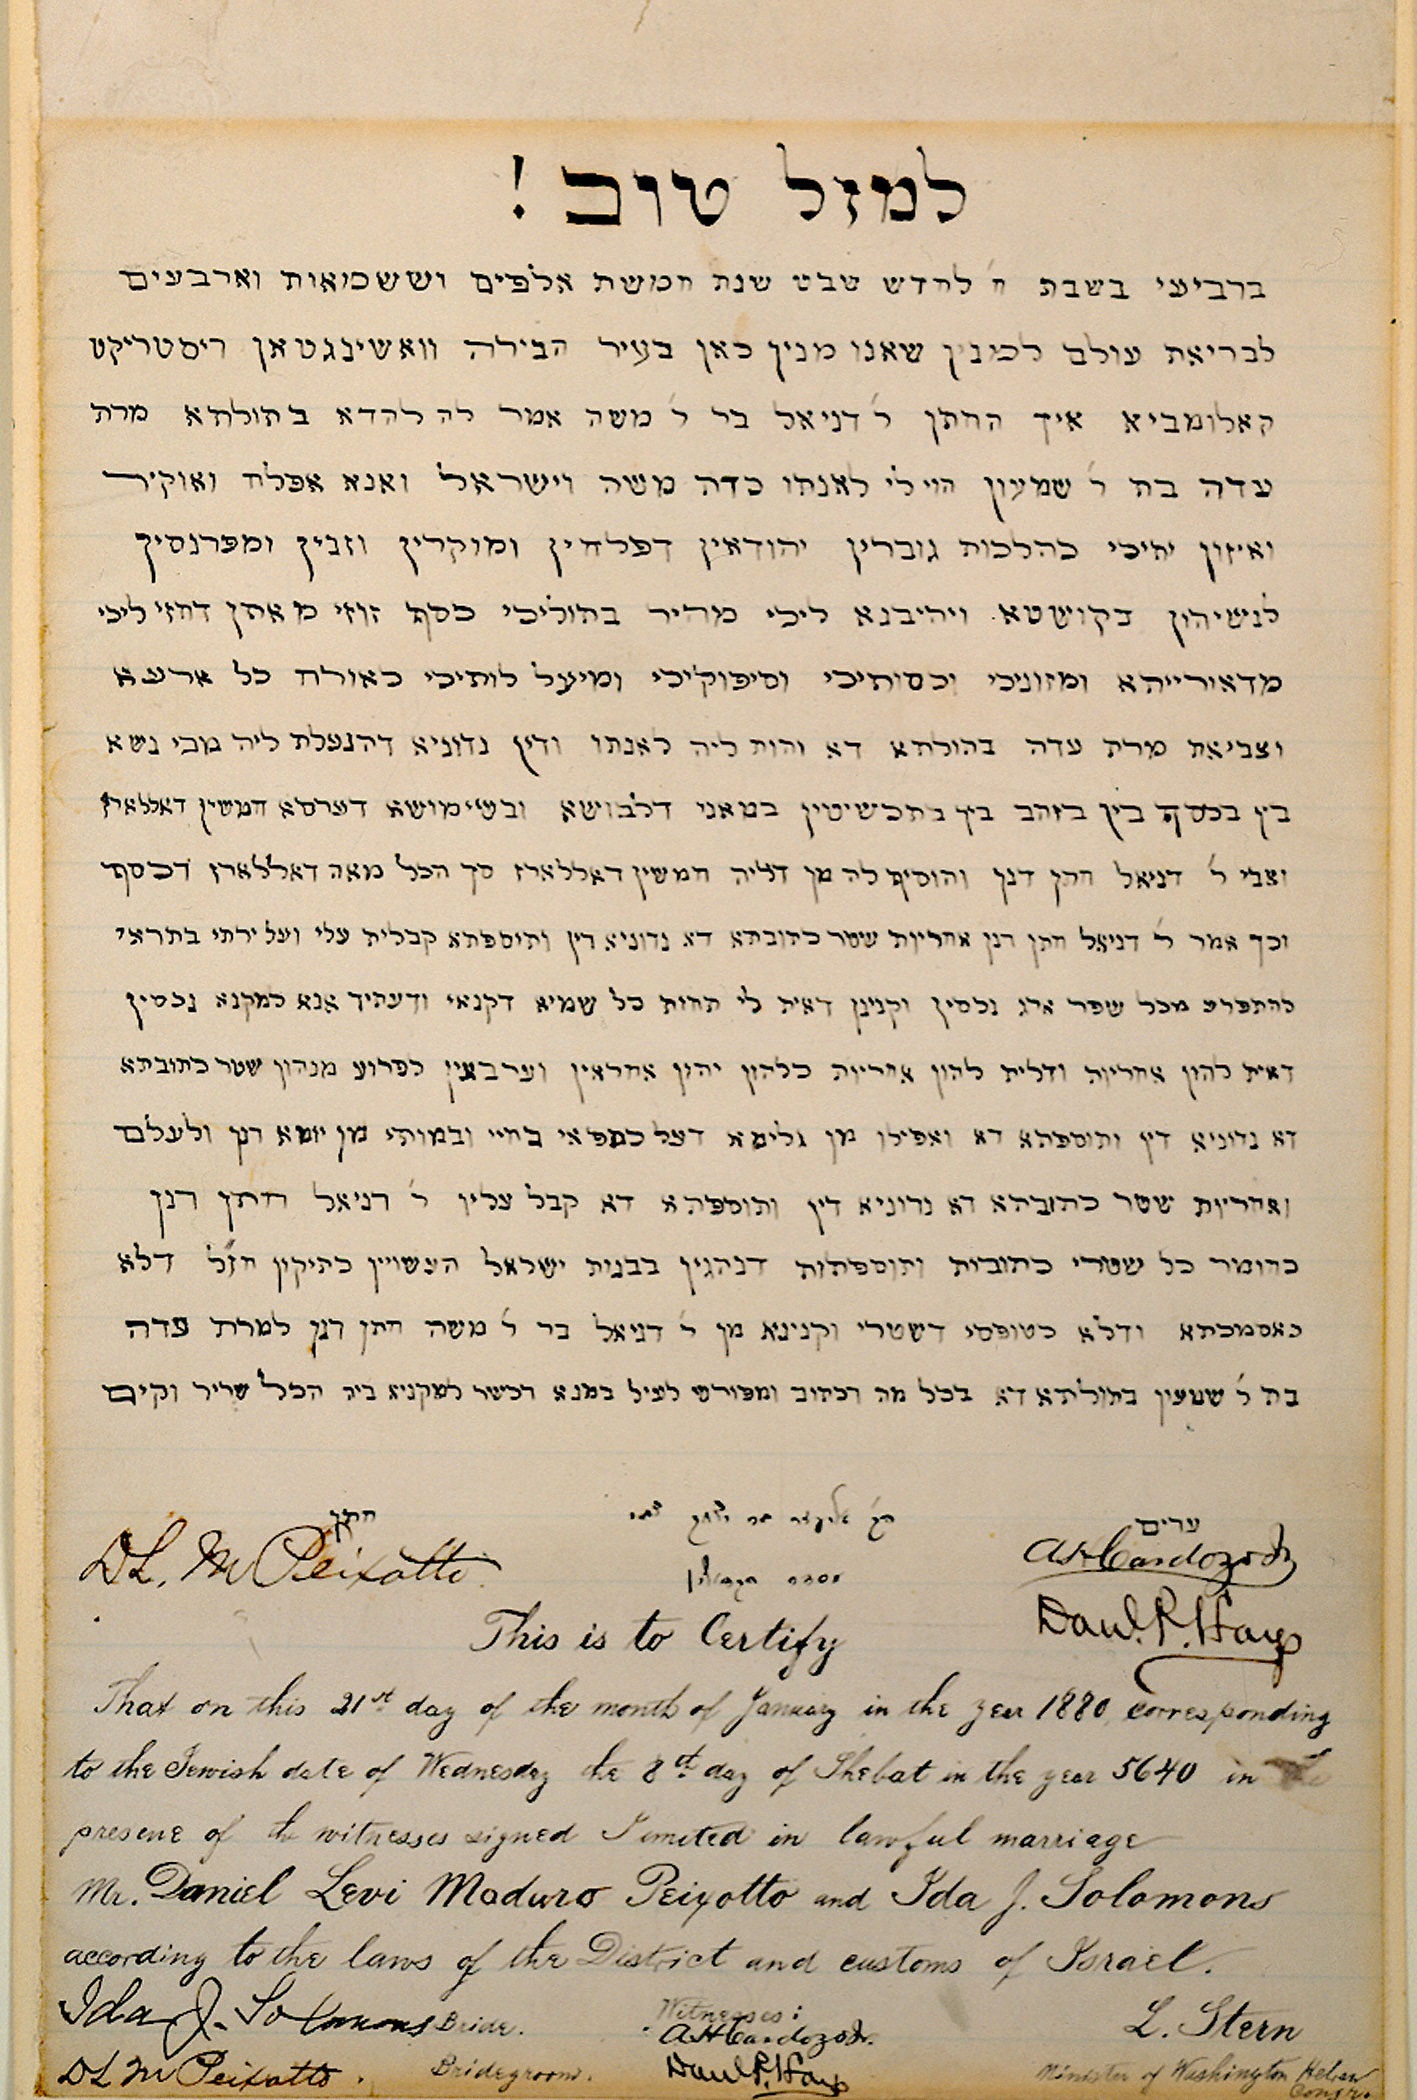 למזל טוב !
ברביעי בשבת ח׳ לחדש שבט שנת חמשת אלפים וששמאות וארבעים
לבריאת עולם למנין שאנו מנין כאן בעיר הבירה וואשינגטאן דיסטריקט
קאלומביא איך החתן ר׳ דניאל בר ר׳ משה אמר לה להדא בתולתא מרת
עדה בת ר׳ שמעון הוי לי לאנתו כדת משה וישראל ואנא אפלח ואוקיר
ואיזון יתיכי כהלכות גוברין יהודאין דפלחין ומוקרין וזנין ומפרנסין
לנשיהון בקושטא ויהיבנא ליכי מהר בתוליכי כסף זוזי מאתן דחזי ליכי
מדאורייתא ומזוניכי וכסותיכי וסיפוקיכי ומיעל לותיכי כאורח כל ארעא
וצביאת מרת עדה בתולתא דא והות ליה לאנתו ודין נדוניא דהנעלת ליה מבי נשא
בין בכסף בין בזהב בין בתכשיטין במאני דלבושא ובשימושא דערסא חמשין דאללארז
וצבי ר׳ דניאל חתן דנן והוסיף לה מן דליה חמשין דאללארז סך הכל מאה דאללארז דכסף
וכך אמר ר׳ דניאל חתן דנן אחריות שטר כתובתא דא נדוניא דין ותוספתא קבלית עלי ועל ירתי בתראי
להתפרע מכל שפר ארג נכסין וקנינן דאית לי תחות כל שמיא דקנאי ודעתיד אנא למקנא נכסין
דאית להון אחריות ודלית להון אחריות כלהון יהון אחראין וערבאין לפרוע מנהון שטר כתובתא
דא נדוניא דין ותוספתא דא ואפילו מן גלימא דעל כתפאי בחיי ובמותי מן יומא דנן ולעלם
ואחריות שטר כתובתא דא נדוניא דין ותוספתא דא קבל עליו ר׳ דניאל חתן דנן
כחומר כל שטרי כתובות ותוספתות דנהגין בבנות ישראל העשויין כתיקון חז״ל דלא
כאסמכתא ודלא כטופסי דשטרי וקנינא מן ר׳ דניאל בר ר׳ משה חתן דנן למרת עדה
בת ר׳ שמעון בתולתא דא בכל מה דכתוב ומפורש לעיל במנא דכשר למקניא ביה הכל שריר וקים
חתן
עדים
D L. M Peixotto
A H Cardozo Jr
Danl. P. Hays
This is to Certify
That on this 21st day of the month of January in the year 1880, corresponding
to the Jewish date of Wednesday the 8th day of Shebat in the year 5640 in the
presene of the witnesses signed I united in lawful marriage
Mr. Daniel Levi Maduro Peixotto and Ida J. Solomons
according to the laws of the District and customs of Israel.
Ida J. Solomons Bride.
Witnesses:
A H Cardozo Jr.
L. Stern
D L M Peixotto. Bridegroom.
Danl P. Hays
Minister of Washington Hebrew Congr.